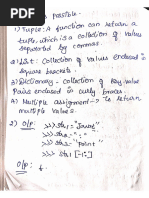 possible -
1) Tuple: A function can return a
tuple, which is a collection of values
separated by commas.
2) List: Collection of values enclosed in
square brackets
3) Dictionary - Collection of key-value
Pairs enclosed in curly braces.
4) Multiple assignment - To return
multiple values.
2) O/P: >>> str =
>>> str1 =
>>> str2 = "Point"
>>> str [-1:]
O/P:
t